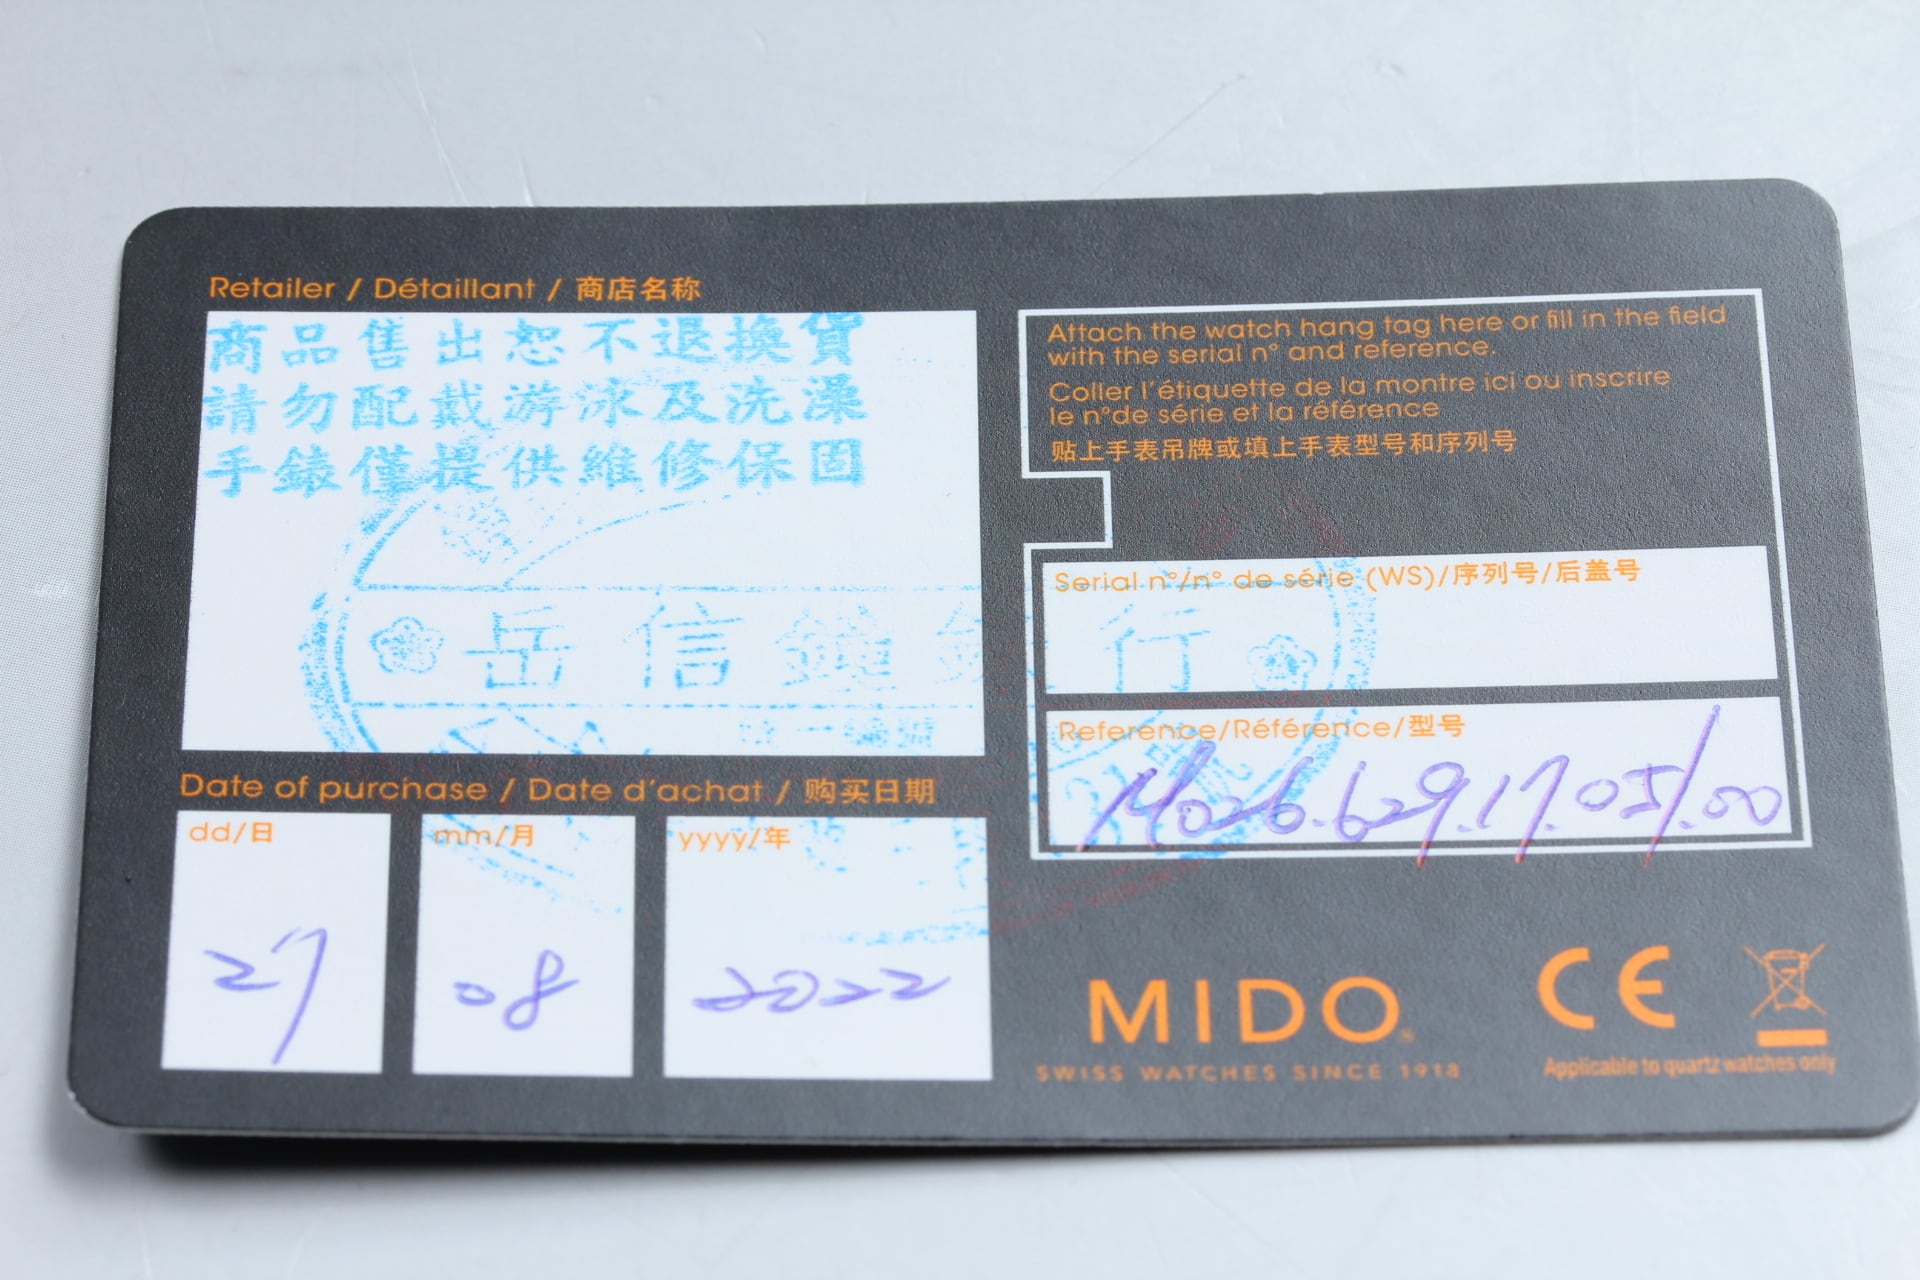 Retailer / Détaillant / 商店名称
商品售出恕不退換貨
請勿配戴游泳及洗澡
手錶僅提供維修保固
岳信鐘錶行
Date of purchase / Date d'achat / 购买日期
dd/日
mm/月
yyyy/年
27
08
2022
Attach the watch hang tag here or fill in the field
with the serial n° and reference.
Coller l'étiquette de la montre ici ou inscrire
le n°de série et la référence
贴上手表吊牌或填上手表型号和序列号
Serial n°/n° de série (WS)/序列号/后盖号
Reference/Référence/型号
M026.629.17.051.00
MIDO
SWISS WATCHES SINCE 1918
CE
Applicable to quartz watches only